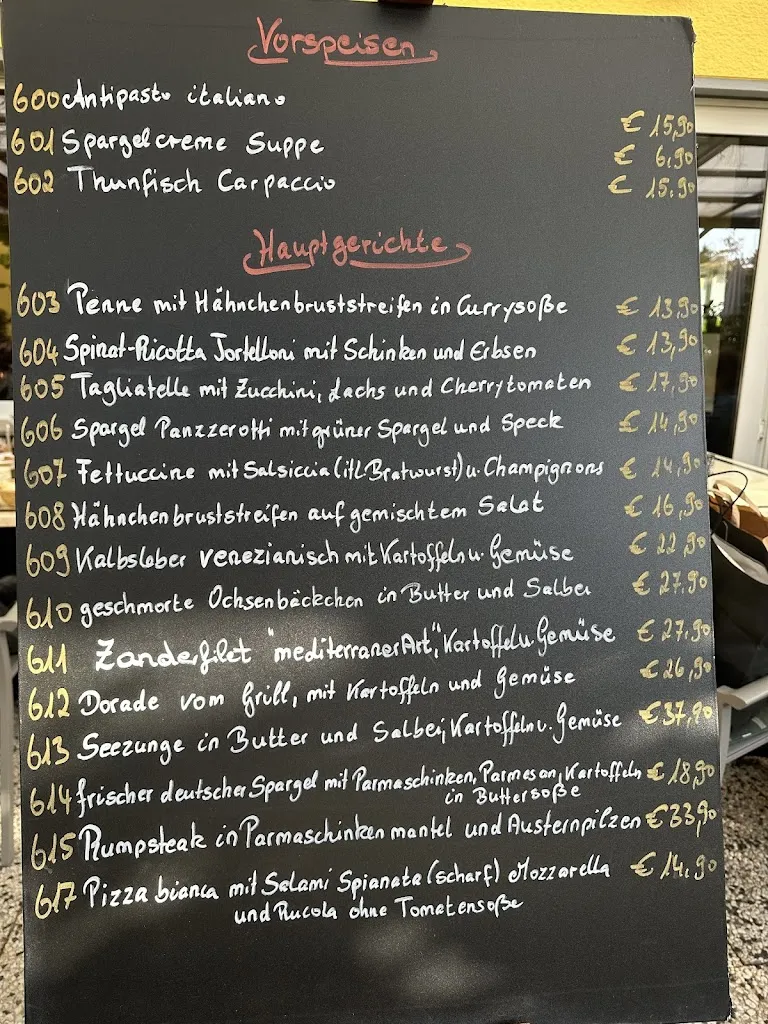 Vorspeisen
600 Antipasto italiano € 15,90
601 Spargelcreme Suppe € 6.90
602 Thunfisch Carpaccio € 15.90
Hauptgerichte
603 Penne mit Hähnchenbruststreifen in Currysoße € 13,90
604 Spinat-Ricotta Tortelloni mit Schinken und Erbsen € 13,90
605 Tagliatelle mit Zucchini, Lachs und Cherrytomaten € 17,90
606 Spargel Panzzerotti mit grüner Spargel und Speck € 14,90
607 Fettuccine mit Salsiccia (itl. Bratwurst) u. Champignons € 14,90
608 Hähnchenbruststreifen auf gemischtem Salat € 16,90
609 Kalbsleber venezianisch mit Kartoffeln u. Gemüse € 22,90
610 geschmorte Ochsenbäckchen in Butter und Salbei € 27.90
611 Zanderfilet "mediterraner Art", Kartoffeln u. Gemüse € 27,90
612 Dorade vom Grill, mit Kartoffeln und Gemüse € 26,90
613 Seezunge in Butter und Salbei, Kartoffeln u. Gemüse € 37,90
614 frischer deutscher Spargel mit Parmaschinken, Parmesan, Kartoffeln € 18,90
in Buttersoße
615 Rumpsteak in Parmaschinkenmantel und Austernpilzen € 33,90
617 Pizza bianca mit Salami Spianata (scharf) Mozzarella € 14.90
und Rucola ohne Tomatensoße